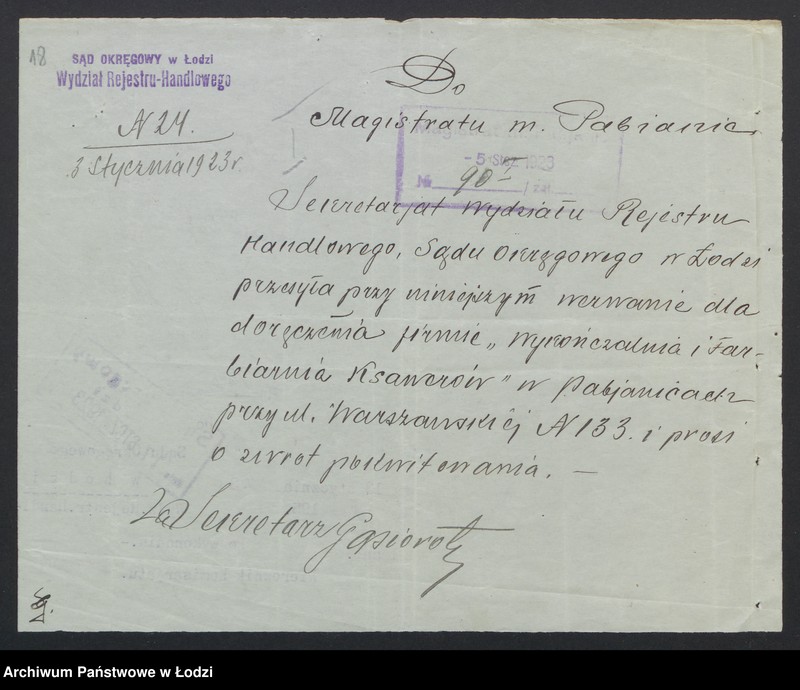 18
SĄD OKRĘGOWY w Łodzi
Wydział Rejestru-Handlowego
N 24.
3 Stycznia 1923 r.
Do
Magistratu m. Pabianic
- 5 STYCZ 1923
№ 90 I / zał.
Sekretarjat Wydziału Rejestru
Handlowego, Sądu Okręgowego w Łodzi
przesyła przy niniejszym wezwanie dla
doręczenia firmie „Wykończalnia i Far-
biarnia Ksawerów" w Pabjanicach
przy ul. Warszawskiej N 133. i prosi
o zwrot pokwitowania. —
Za Sekretarz
Archiwum Państwowe w Łodzi